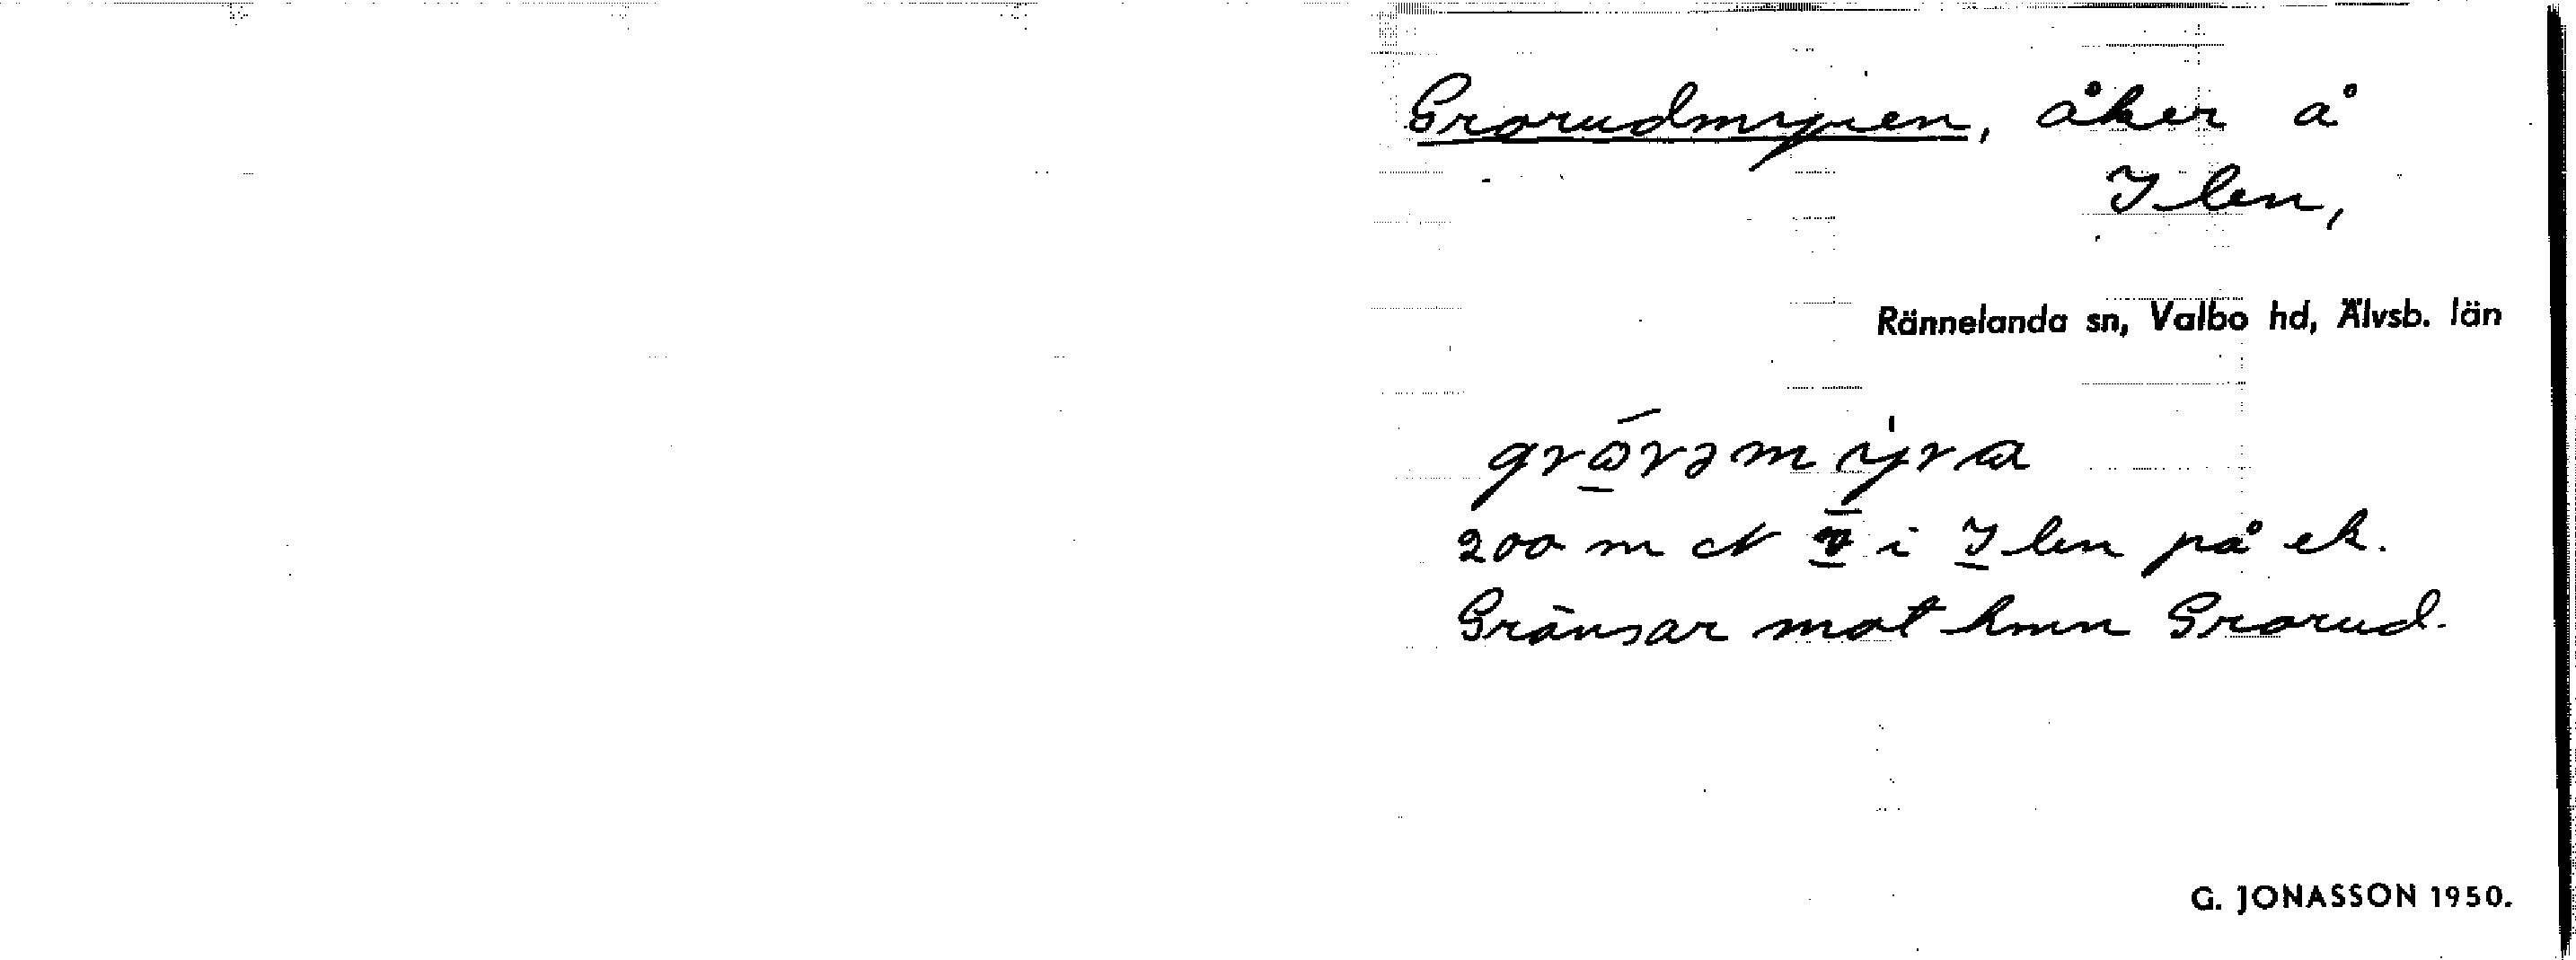 Grorudmyren, åker å
Ilen,
Rännelanda sn, Valbo hd, Älvsb. län
200 m N v i Ilen på ek.
Gränsar mot hmn Grorud.
G. JONASSON 1950.